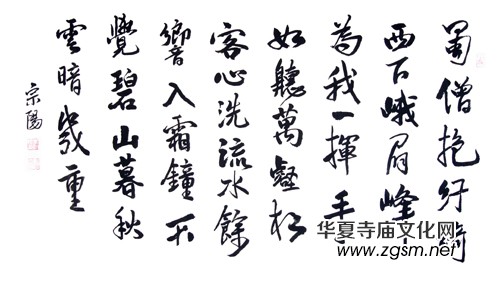 蜀僧抱綠綺
西下峨眉峰
為我一揮手
如聽萬壑松
客心洗流水餘
響入霜鐘不
覺碧山暮秋
雲暗幾重
宗陽
华夏寺庙文化网
www.zgsm.net